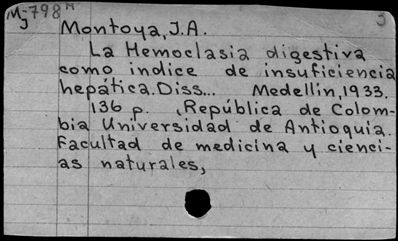 Mj-798 M
Montoya, J.A.
La Hemoclasia digestiva
como indice de insuficiencia
hepática. Diss... Medellin, 1933.
136 p. (República de Colom-
bia Universidad de Antioquia.
Facultad de medicina y cienci-
as naturales,